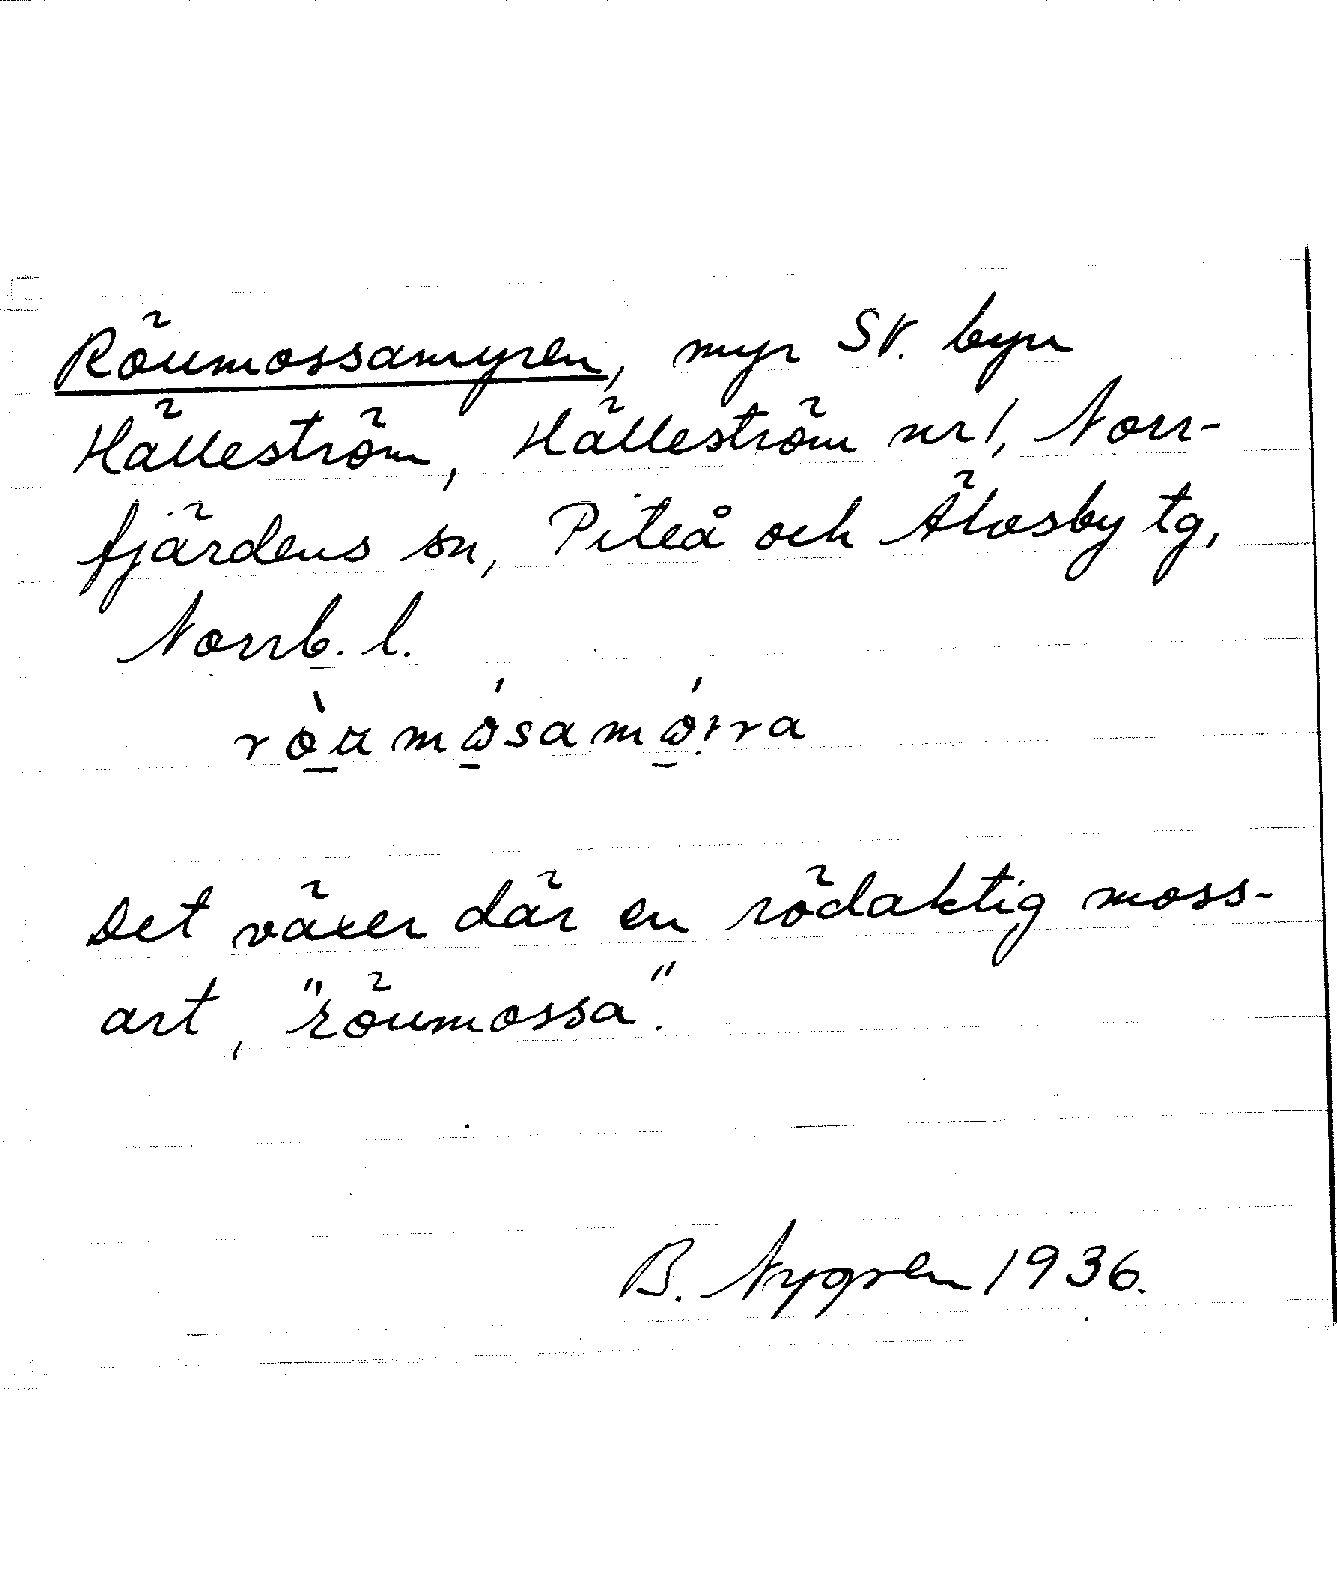 Röumossamyren, myr SV. byn
Hälleström, Hälleström nr 1, Norr-
fjärdens sn, Piteå och Älvsby tg,
Norrb. l.
Det växer där en rödaktig moss-
art, "röumossa".
B. Nygren 1936.